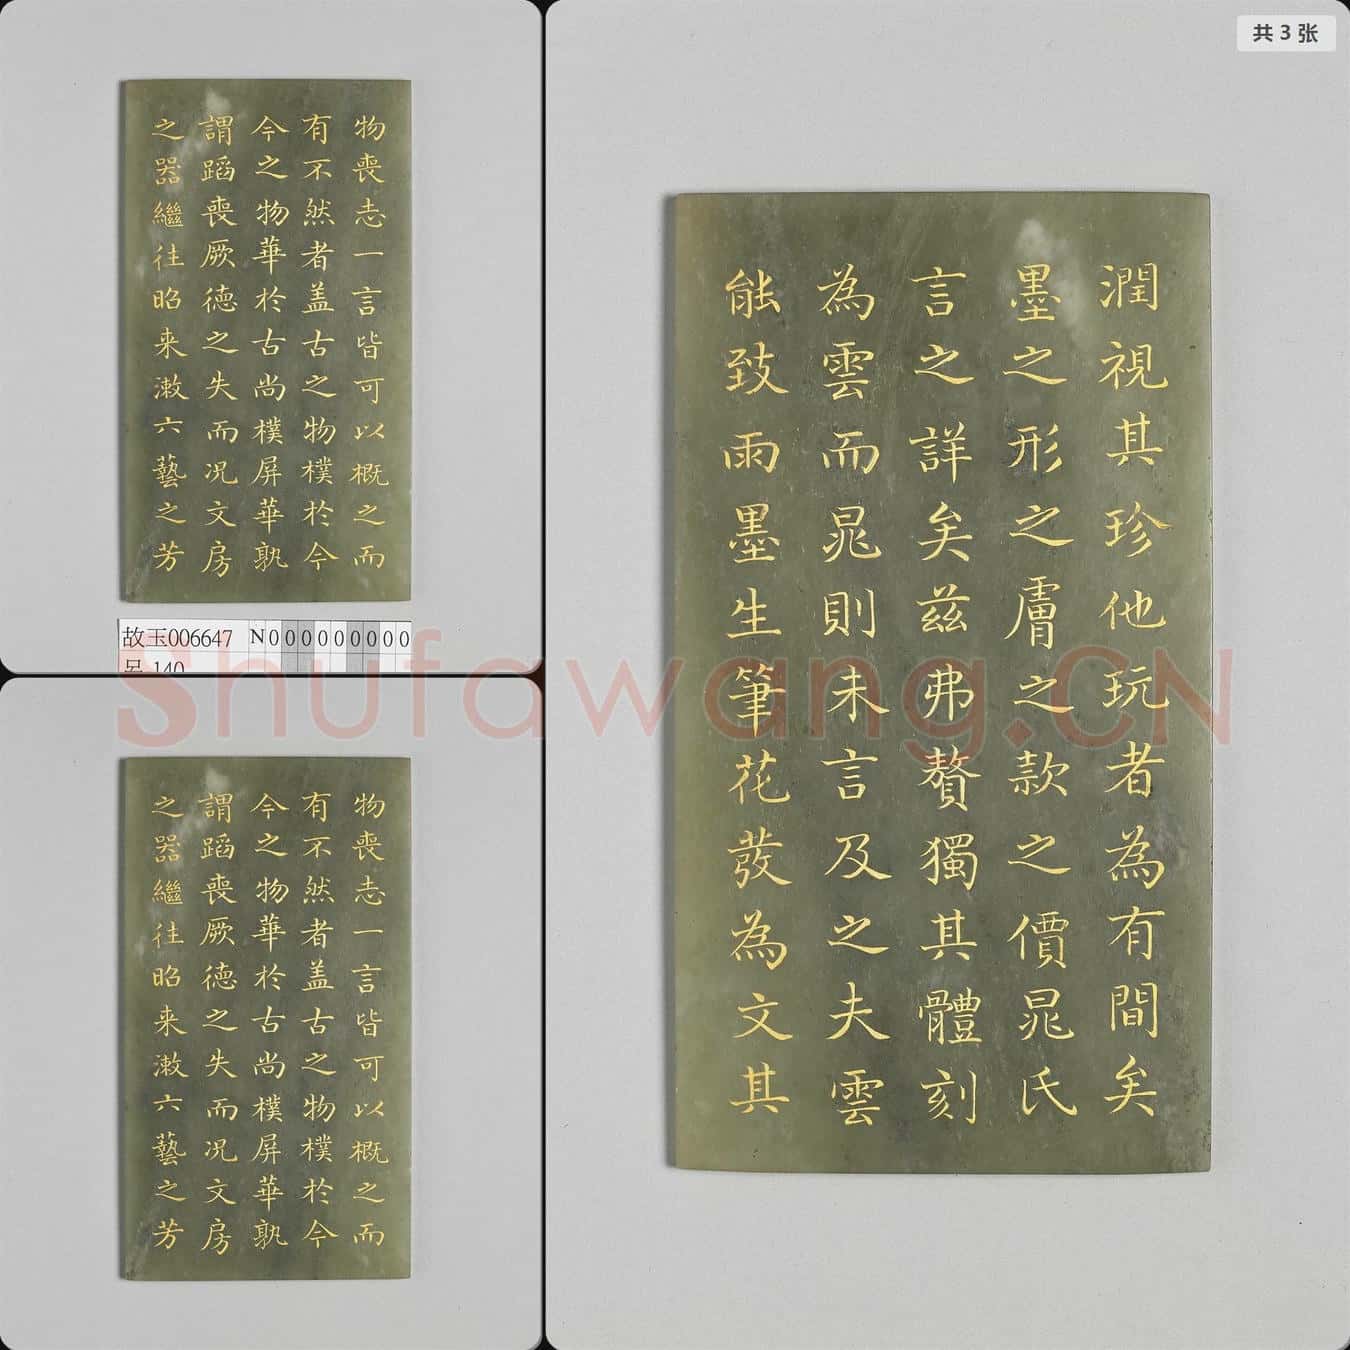 物喪志一言皆可以概之而
有不然者盖古之物樸於今
今之物華於古尚樸屏華孰
謂蹈喪厥德之失而况文房
之器繼往昭来漱六藝之芳
故玉006647
N000000000
呂 140
物喪志一言皆可以概之而
有不然者盖古之物樸於今
今之物華於古尚樸屏華孰
謂蹈喪厥德之失而况文房
之器繼往昭来漱六藝之芳
共 3 张
潤視其珍他玩者為有間矣
墨之形之膚之款之價晁氏
言之詳矣茲弗贅獨其體刻
為雲而晁則未言及之夫雲
能致雨墨生筆花發為文其
Shufawang.CN